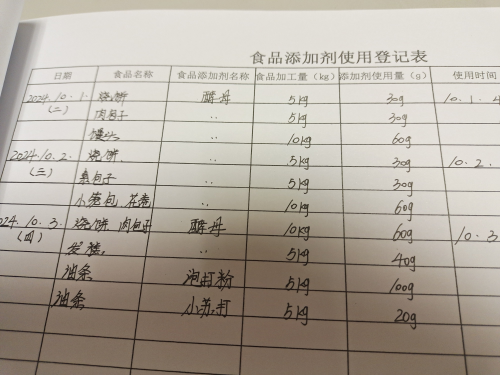 食品添加剂使用登记表
日期 食品名称 食品添加剂名称 食品加工量（kg） 添加剂使用量（g） 使用时间
2024.10.1. 烧饼 酵母 5kg 30g 10.1.4
(二) 肉包子 〃 5kg 30g
馒头 〃 10kg 60g
2024.10.2. 烧饼 〃 5kg 30g 10.2.
(三) 包子 〃 5kg 30g
小笼包 花卷 〃 10kg 60g
024.10.3. 烧饼 肉包子 酵母 10kg 60g 10.3
(四) 发糕 〃 5kg 40g
油条 泡打粉 5kg 100g
油条 小苏打 5kg 20g